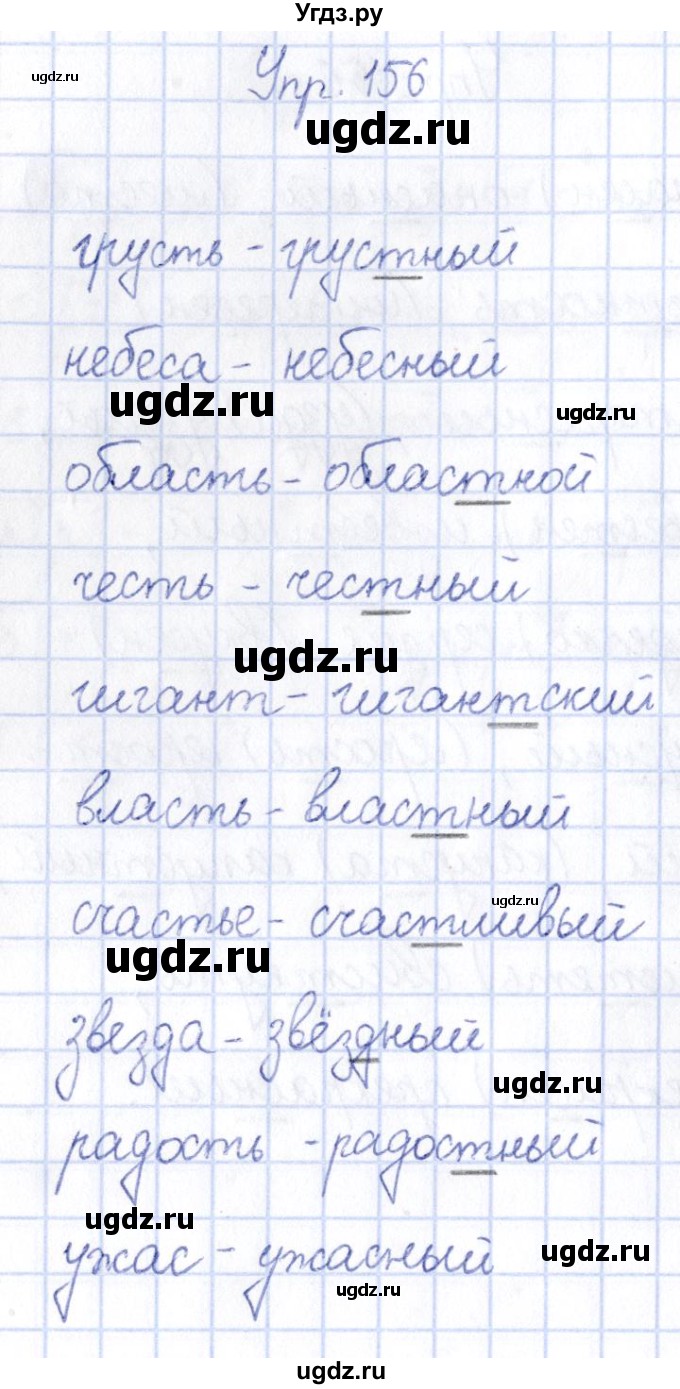 Угдз.ру
ugdz.ru
Упр. 156
ugdz.ru
грусть - грустный
небеса - небесный
ugdz.ru
ugdz.ru
область - областной
честь - честный
ugdz.ru
гигант - гигантский
власть - властный
ugdz.ru
счастье - счастливый
ugdz.ru
звезда - звёздный
ugdz.ru
радость - радостный
ugdz.ru
ужас - ужасный
ugdz.ru
ugdz.ru
ugdz.ru